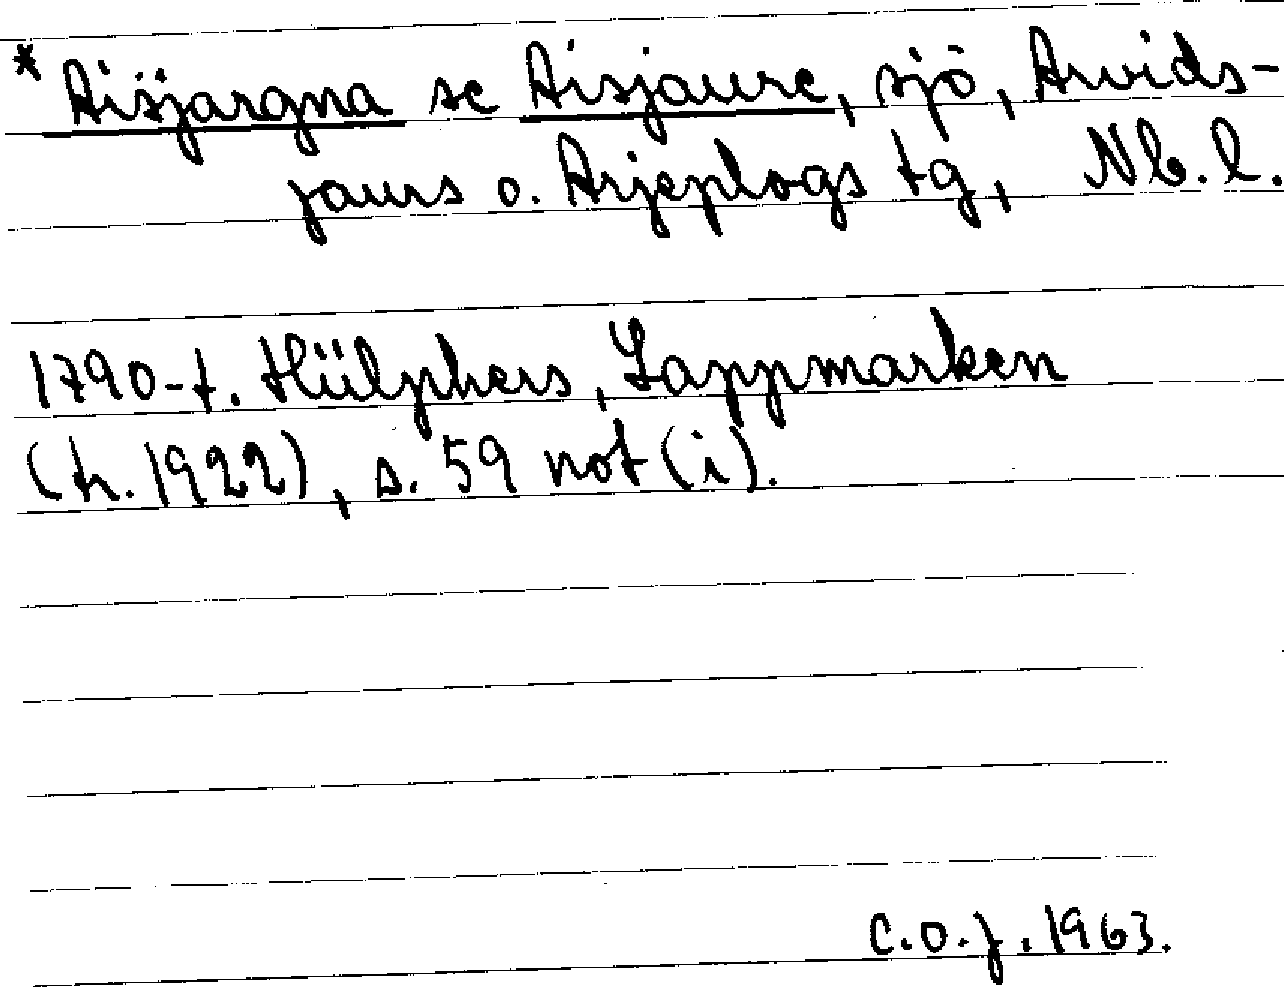 * Aisjargna se Aisjaure, sjö, Arvids-
jaurs o. Arjeplogs tg, Nb. l.
1790-t. Hülphers, Lappmarken
(tr. 1922), s. 59 not (i).
C.O.J. 1963.